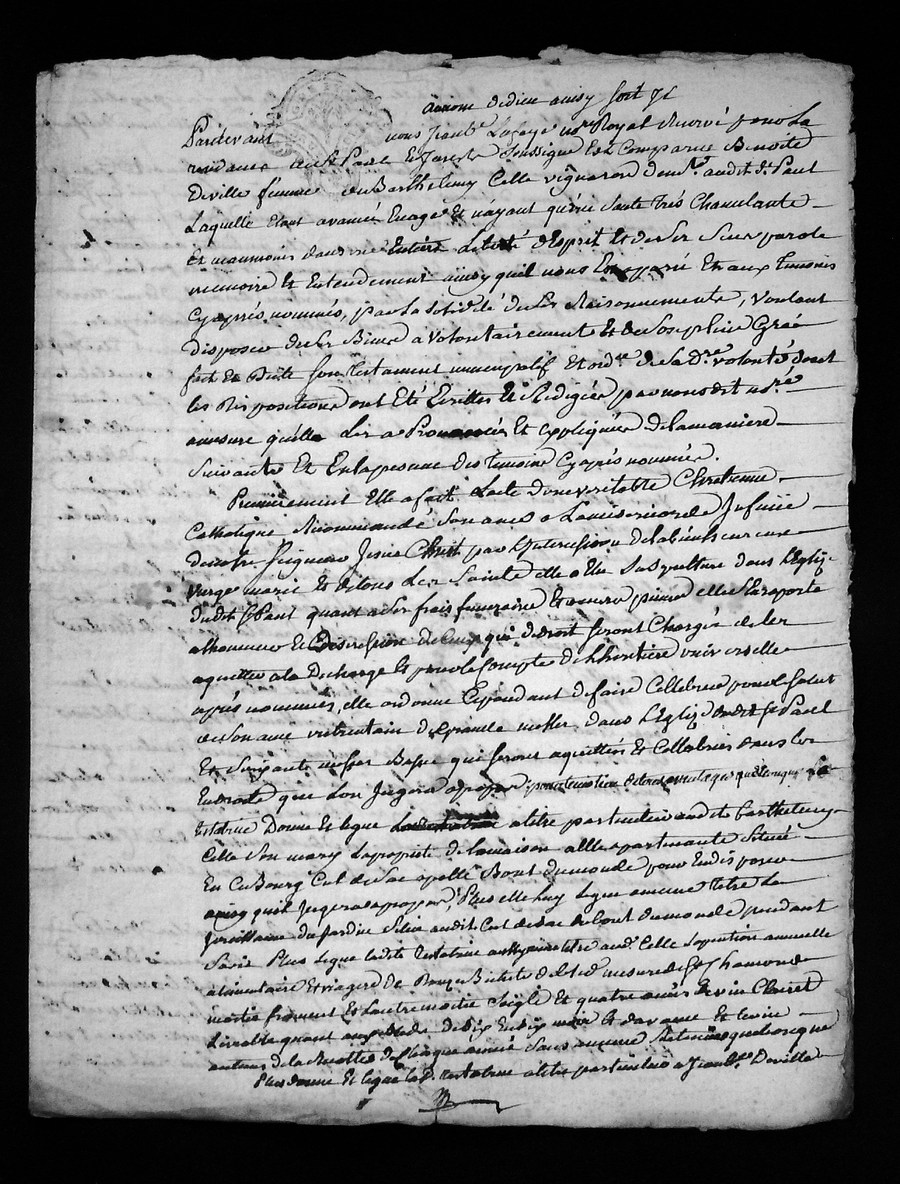 au nom de dieu ainsy soit il
Pardevant nous Jean Bte no.re Royal Reservé pour la
residance de St Paul En Jarest Soussigné Est Comparue Benoite
Deville femme de Barthelemy Celle vigneron demt. audit St Paul
Laquelle Etant avancée En age Et n'ayant qu'une Santé Très Chancelante
et neanmoins dans une Entière Liberté d'Esprit Et de Ses Sens parole
memoire et Entendement ainsy quil nous En apparu Et aux temoins
Cy après nommés, par La Solidité de Ses Raisonnements, Voulant
disposer de Ses Biens a Volontairement Et de Son plein Gré
fait Et Dicté Son testament nuncupatif Et ord.re de Sa D.re volonté dont
les Dispositions ont Eté Ecrittes Et Redigées par nous dit no.re
a mesure quelle Les a Prononcées Et Expliquées de la maniere
Suivante Et En la presence des temoins Cy après nommés.
Premierement Elle a fait L'acte d'une veritable Chretienne
Catholique Recommandé Son ame a La misericorde Infinie
de notre Seigneur Jesus Christ par L'Intercession de la bienheureuse
Vierge marie Et de tous Les Saints elle a Elu Sa Sepulture dans L'Eglise
dudit St Paul quant a Ses frais funeraires Et œuvres pieuses elle S'En raporte
a lhonneur Et Discretion de Ceux qui de droit Seront Chargés de les
aquitter a la Decharge Et pour le Compte de L'heritiere universelle
après nommée, elle ordonne Cependant de faire Cellebrer pour le Salut
de Son ame une trentaine de grandes messes dans L'Eglise dudit St Paul
Et Soixante messes Basse qui Seront aquittées Et Cellebrées dans les
Endroits que Lon Jugera apropos
testatrice Donne Et legue a titre particulier audit Barthelemy
Celle Son mary La propriété de la maison a Elle apartenante Située
En Ce Bourg Cul de Sac apellé Bout du monde pour En disposer
ainsy quil Jugera apropos, Plus elle luy legue au meme titre La
Jouissance du Jardin Situé audit Cul de Sac de bout du monde pendant
Sa vie Plus legue ladite testatrice au meme titre aud. Celle La pention annuelle
alimentaire Et viagere de mesure de St Chamond
moitié froment Et L'autre moitié Seigle Et quatre anées de vin Clairet
au tems de la Recolte de Chaque année Sans aucune Retenue quelconque
Plus donne Et legue la D. testatrice a titre particulier a Jean Bte Deville